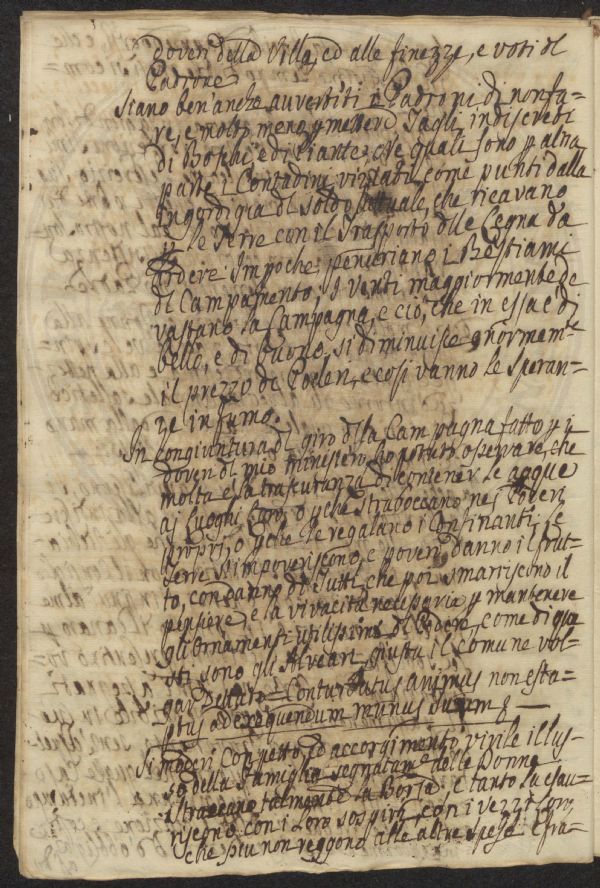 doveri della Villa, ed alle finezze, e voti dl
Padrone
Siano ben'anche avvertiti i Padroni di non fa=
re, e molto meno pmettere Tagli indiscreti
di Boschi, e di Piante, de quali sono p altra
parte i Contadini viziati, come punti dalla
Ingordigia dl Soldo attuale, che ricavano
p le Terre con il Trasporto dlle Legna da
Ardere. Impoche penuriano i Bestiami
dl Campamento, I venti maggiormente de
vastano la Campagna, e ciò, che in essa è di
bello, e di buono, si diminuisce enormem=
il prezzo de Poderi, e così vanno le Speran=
ze in fumo.
In congiuntura dl giro dlla Campagna fatto p i
doveri dl mio ministero, ho potuto osservare, che
molta è la trascuranza di contenere le acque
a i Luoghi Loro, o pche straboccano nei Poderi
proprj, o pche le regalano i Confinanti. Le
Terre s'impoveriscono, e poveri danno il frut=
to, con danno di Tutti, che poi smarriscono il
pensiere, e la vivacità necessaria p mantenere
gli ornamenti utilissimi dl Podere, come di que
sti sono gli Alveari, giusta il comune vol=
gar Dettato = Conturbatus animus non est a=
ptus ad exequendum munus suum
Si moderi con petto, ed accorgimento virile il lus=
so della Famiglia segnatam.e delle Donne
Straccano talmente la Borsa, e tanto la esau=
riscono con i Loro sospiri, con i vezzi Loro
che più non reggono alle altre spese. e fra=